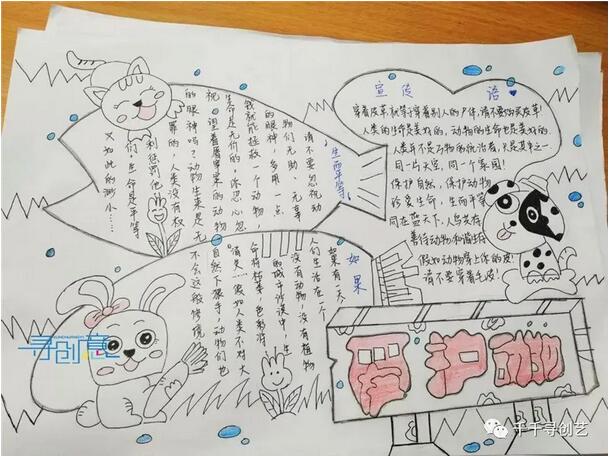 宣传语
穿着皮草,就等于穿着别人的尸体,请不要购买皮草!
人类的生命是美好的,动物的生命也是美好的.
人类并不是万物的统治者,只是其中之一.
同一片天空,同一个家园!
保护自然,保护动物
珍爱生命,生而平等
同在蓝天下,人鸟共存
善待动物和谐
假如动物穿上你的皮!
请不要穿着毛皮!
生而平等
请不要忽视动
物们无助、无辜
的眼神,多用一点
我就能拯救一个动物,
生命是无价的,你忍心忽
视,望着屠宰案的动物
的眼神吗?动物生来是无
罪的,人类没有权
利惩罚他
们,生命是平等
又如此的渺小……
如果
如果有一天,
人们生活在一个
没有动物,没有植物
的城市沙漠中,生
命将枯萎,色彩将
消失……假如人类不对大
自然下狠手,动物们也
不会这般惨境
爱护动
寻创意
千千寻创艺